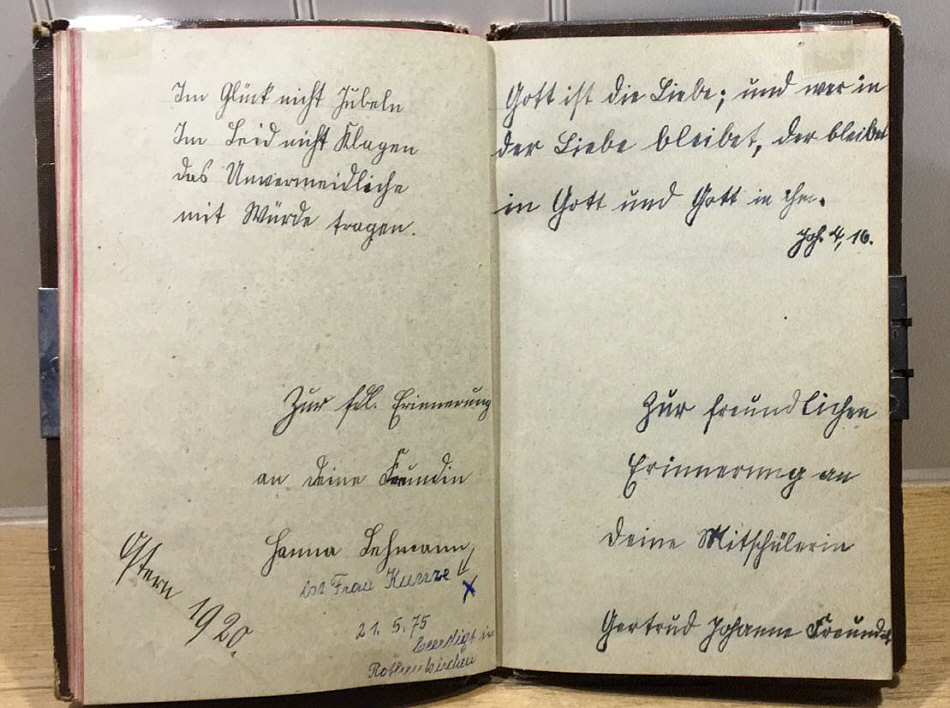 Im Glück nicht Jubeln
Im Leid nicht Klagen
das Unvermeidliche
mit Würde tragen.
Zur fdl. Erinnerung
an Deine Freundin
Hanna Lehmann
Ostern 1920.
ist Frau Kunze
21. 5. 75
beerdigt in
Rothenkirchen
Gott ist die Liebe; und wer in
der Liebe bleibet, der bleibet
in Gott und Gott in ihm.
Joh. 4, 16.
Zur freundlichen
Erinnerung an
Deine Mitschülerin
Gertrud Johanne